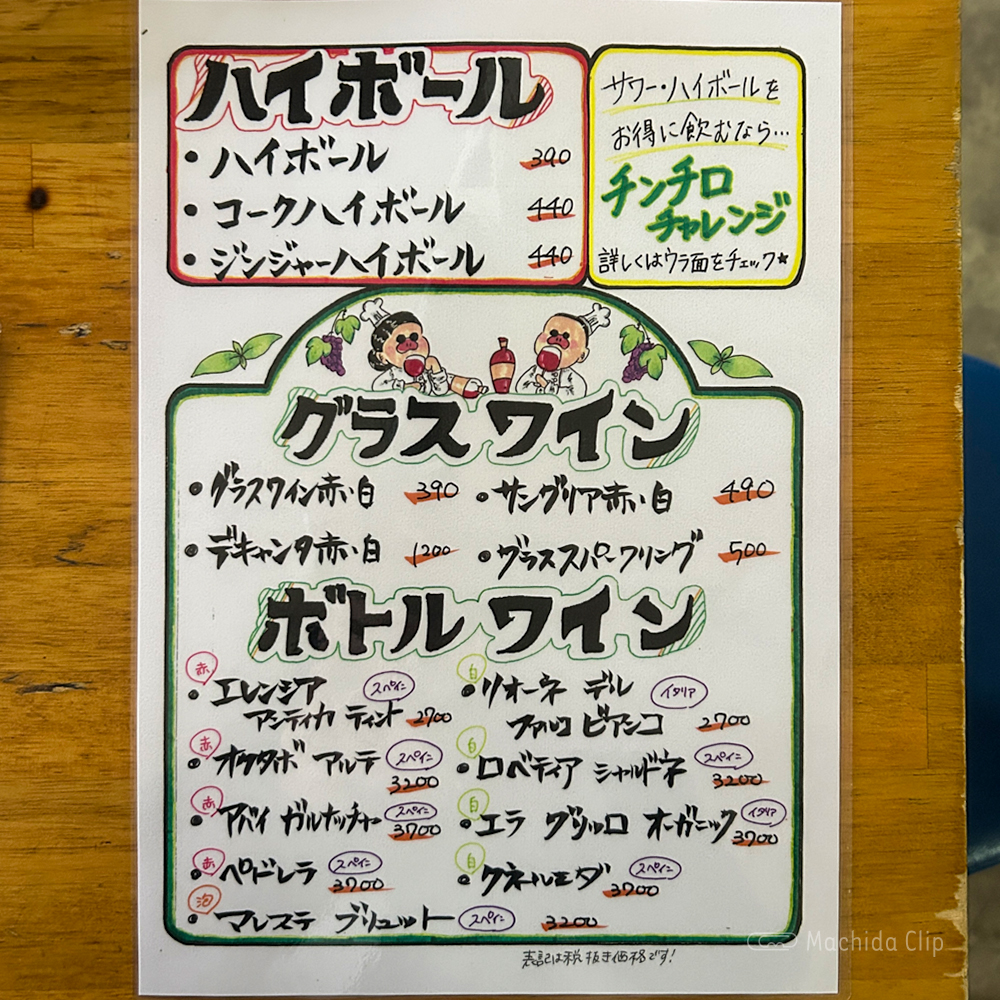 ハイボール
・ハイボール 390
・コークハイボール 440
・ジンジャーハイボール 440
サワー・ハイボールを
お得に飲むなら…
チンチロ
チャレンジ
詳しくはウラ面をチェック★
グラスワイン
・グラスワイン赤い白 390
・サングリア赤い白 490
・デキャンタ赤い白 1200
・グラススパークリング 500
ボトルワイン
赤
・エレンシア スペイン
アンティカ ティント 2700
白
・リオーネ デル イタリア
ファルコ ビアンコ 2700
赤
・オクタボ アルテ スペイン
3200
白
・ロベティア シャルドネ スペイン
3200
赤
・アバイ ガルナッチャー スペイン
3700
白
・エラ グリッロ オーガニック イタリア
3700
赤
・ペドレラ スペイン
3700
白
・クネールエダ スペイン
3700
泡
・マレステ ブリュット スペイン 3200
表記は税抜き価格です!
Machida Clip